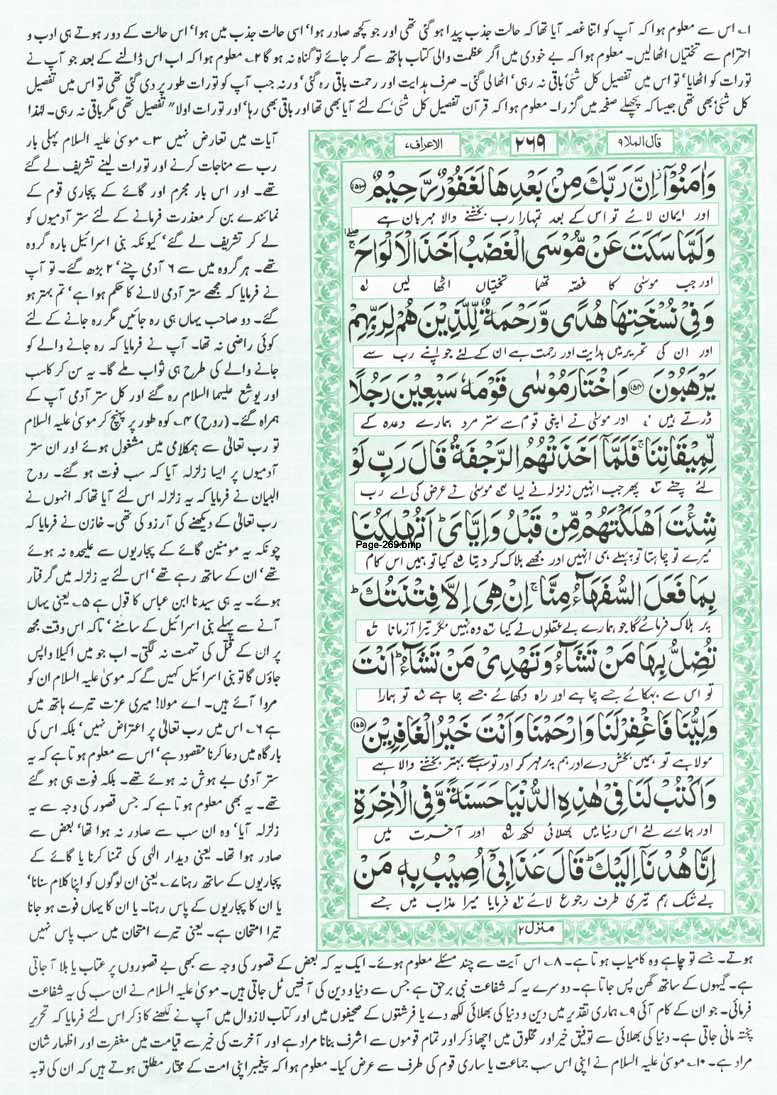 ۱۔ اس سے معلوم ہوا کہ آپ کو اتنا غصہ آیا تھا کہ حالت جذب پیدا ہو گئی تھی اور جو کچھ صادر ہوا' اسی حالت جذب میں ہوا' اس حالت کے دور ہوتے ہی ادب و
احترام سے تختیاں اٹھا لیں۔ معلوم ہوا کہ بے خودی میں اگر عظمت والی کتاب ہاتھ سے گر جائے تو گناہ نہ ہو گا ۲۔ معلوم ہوا کہ اب اس ڈالنے کے بعد جو آپ نے
تورات کو اٹھایا' تو اس میں تفصیل کل شئ باقی نہ رہی' اٹھا لی گئی۔ صرف ہدایت اور رحمت باقی رہ گئی' ورنہ جب آپ کو تورات طور پر دی گئی تھی تو اس میں تفصیل
کل شئ بھی تھی جیسا کہ پچھلے صفحہ میں گزرا۔ معلوم ہوا کہ قرآن تفصیل کل شئ' کے لئے آیا بھی تھا اور باقی بھی رہا' اور تورات اولاً" تفصیل تھی مگر باقی نہ رہی۔ لہٰذا
قال الملا ۹
۲۶۹
الاعراف ۷
وَاٰمَنُوْۤا٘ اِنَّ رَبَّكَ مِنْۢ بَعْدِهَا لَغَفُوْرٌ رَّحِیْمٌ ۝۱۵۳
اور ایمان لائے تو اس کے بعد تمہارا رب بخشنے والا مہربان ہے
وَلَمَّا سَكَتَ عَنْ مُّوْسَی الْغَضَبُ اَخَذَ الْاَلْوَاحَ ۖۚ
اور جب موسیٰ کا غصہ تھما تختیاں اٹھا لیں
وَفِیْ نُسْخَتِهَا هُدًی وَّرَحْمَةٌ لِّلَّذِیْنَ هُمْ لِرَبِّهِمْ
اور ان کی تحریر میں ہدایت اور رحمت ہے ان کے لئے جو اپنے رب سے
یَرْهَبُوْنَ ۝۱۵۴ وَاخْتَارَ مُوْسٰی قَوْمَهٗ سَبْعِیْنَ رَجُلًا
ڈرتے ہیں اور موسیٰ نے اپنی قوم سے ستر مرد ہمارے وعدہ کے
لِّمِیْقَاتِنَا ۚ فَلَمَّاۤ اَخَذَتْهُمُ الرَّجْفَةُ قَالَ رَبِّ لَوْ
لئے چنے پھر جب انہیں زلزلہ نے لیا موسیٰ نے عرض کی اے رب
شِئْتَ اَهْلَكْتَهُمْ مِّنْ قَبْلُ وَاِیَّایَ ؕ اَتُهْلِكُنَا
Page-269.bmp
میرے تو چاہتا تو پہلے ہی انہیں اور مجھے ہلاک کر دیتا کیا تو ہمیں اس کام
بِمَا فَعَلَ السُّفَهَآءُ مِنَّا ۚ اِنْ هِیَ اِلَّا فِتْنَتُكَ ؕ
پر ہلاک فرمائے گا جو ہمارے بے عقلوں نے کیا وہ نہیں مگر تیرا آزمانا
تُضِلُّ بِهَا مَنْ تَشَآءُ وَتَهْدِیْ مَنْ تَشَآءُ ؕ اَنْتَ
تو اس سے بہکائے جسے چاہے اور راہ دکھائے جسے چاہے تو ہمارا
وَلِیُّنَا فَاغْفِرْ لَنَا وَارْحَمْنَا وَاَنْتَ خَیْرُ الْغٰفِرِیْنَ ۝۱۵۵
مولا ہے تو ہمیں بخش دے اور ہم پر مہر کر اور تو سب سے بہتر بخشنے والا ہے
وَاكْتُبْ لَنَا فِیْ هٰذِهِ الدُّنْیَا حَسَنَةً وَّفِی الْاٰخِرَةِ
اور ہمارے لئے اس دنیا میں بھلائی لکھ اور آخرت میں
اِنَّا هُدْنَاۤ اِلَیْكَ ؕ قَالَ عَذَابِیْۤ اُصِیْبُ بِهٖ مَنْ
بے شک ہم تیری طرف رجوع لائے فرمایا میرا عذاب میں جسے
منزل ۲
آیات میں تعارض نہیں ۳۔ موسیٰ علیہ السلام پہلی بار
رب سے مناجات کرنے اور تورات لینے تشریف لے گئے
تھے۔ اور اس بار مجرم اور گائے کے پجاری قوم کے
نمائندے بن کر معذرت فرمانے کے لئے ستر آدمیوں کو
لے کر تشریف لے گئے' کیونکہ بنی اسرائیل بارہ گروہ
تھے۔ ہر گروہ میں سے ۶ آدمی چنے' ۲ بڑھ گئے۔ تو آپ
نے فرمایا کہ مجھے ستر آدمی لانے کا حکم ہوا ہے' تم بہتر ہو
گے۔ دو صاحب یہاں ہی رہ جائیں مگر رہ جانے کے لئے
کوئی راضی نہ تھا۔ آپ نے فرمایا کہ رہ جانے والے کو
جانے والے کی طرح ہی ثواب ملے گا۔ یہ سن کر کاسب
اور یوشع علیہما السلام رہ گئے اور کل ستر آدمی آپ کے
ہمراہ گئے۔ (روح) ۴۔ کوہ طور پر پہنچ کر موسیٰ علیہ السلام
تو رب تعالیٰ سے ہمکلامی میں مشغول ہوئے اور ان ستر
آدمیوں پر ایسا زلزلہ آیا کہ سب فوت ہو گئے۔ روح
البیان نے فرمایا کہ یہ زلزلہ اس لئے آیا تھا کہ انہوں نے
رب تعالیٰ کے دیکھنے کی آرزو کی تھی۔ خازن نے فرمایا کہ
چونکہ یہ مومنین گائے کے پجاریوں سے علیحدہ نہ ہوئے
تھے' ان کے ساتھ رہے تھے' اس لئے یہ زلزلہ میں گرفتار
ہوئے۔ یہ ہی سیدنا ابن عباس کا قول ہے ۵۔ یعنی یہاں
آنے سے پہلے بنی اسرائیل کے سامنے' تاکہ اس وقت مجھ
پر ان کے قتل کی تہمت نہ لگتی۔ اب جو میں اکیلا واپس
جاؤں گا تو بنی اسرائیل کہیں گے کہ موسیٰ علیہ السلام ان کو
مروا آئے ہیں۔ اے مولا! میری عزت تیرے ہاتھ میں
ہے ۶۔ اس میں رب تعالیٰ پر اعتراض نہیں' بلکہ اس کی
بارگاہ میں دعا کرنا مقصود ہے' اس سے معلوم ہوتا ہے کہ یہ
ستر آدمی بے ہوش نہ ہوئے تھے۔ بلکہ فوت ہی ہو گئے
تھے۔ یہ بھی معلوم ہوتا ہے کہ جس قصور کی وجہ سے یہ
زلزلہ آیا' وہ ان سب سے صادر نہ ہوا تھا' بعض سے
صادر ہوا تھا۔ یعنی دیدار الٰہی کی تمنا کرنا یا گائے کے
پجاریوں کے ساتھ رہنا ۷۔ یعنی ان لوگوں کو اپنا کلام سنانا'
یا ان کا پجاریوں کے پاس رہنا۔ یا ان کا یہاں فوت ہو جانا
تیرا امتحان ہے۔ یعنی تیرے امتحان میں سب پاس نہیں
ہوتے۔ جسے تو چاہے وہ کامیاب ہوتا ہے۔ ۸۔ اس آیت سے چند مسئلے معلوم ہوئے۔ ایک یہ کہ بعض کے قصور کی وجہ سے کبھی بے قصوروں پر عتاب یا بلا آ جاتی
ہے۔ گیہوں کے ساتھ گھن پس جاتا ہے۔ دوسرے یہ کہ شفاعت نبی برحق ہے جس سے دنیا و دین کی آفتیں ٹل جاتی ہیں۔ موسیٰ علیہ السلام نے ان سب کی یہ شفاعت
فرمائی۔ جو ان کے کام آئی ۹۔ ہماری تقدیر میں دین و دنیا کی بھلائی لکھ دے یا فرشتوں کے صحیفوں میں اور کتاب لازوال میں آپ نے لکھنے کا ذکر اس لئے فرمایا کہ تحریر
پختہ مانی جاتی ہے۔ دنیا کی بھلائی سے توفیق خیر اور مخلوق میں اچھا ذکر اور تمام قوموں سے اشرف بنانا مراد ہے اور آخرت کی خیر سے قیامت میں مغفرت اور اظہار شان
مراد ہے۔ ۱۰۔ موسیٰ علیہ السلام نے اپنی اس سب جماعت یا ساری قوم کی طرف سے عرض کیا۔ معلوم ہوا کہ پیغمبر اپنی امت کے مختار مطلق ہوتے ہیں کہ ان کی توبہ